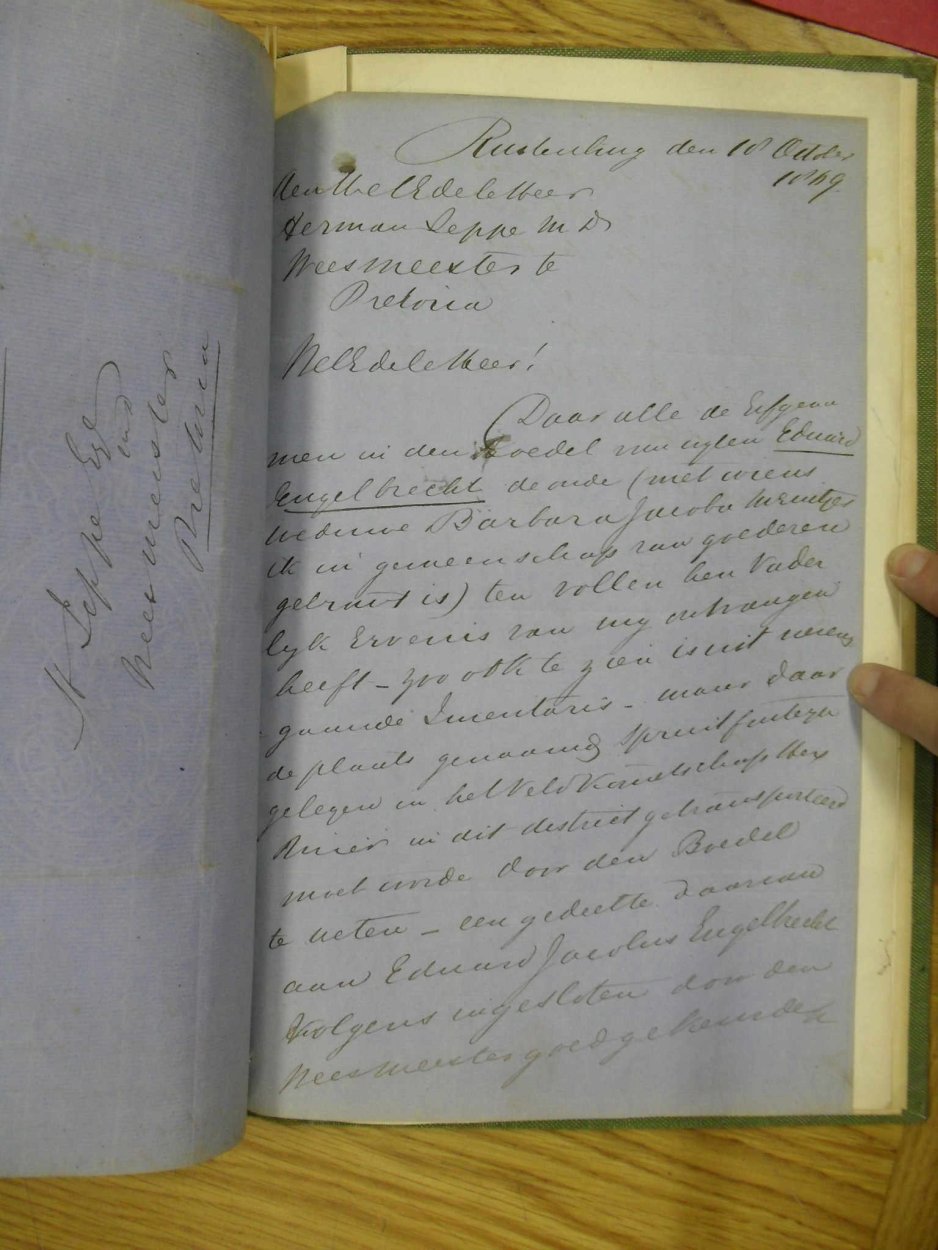 H Jeppe Esq
Weesmeester
Pretoria
Rustenburg den 18 October
1869
Den Wel Edele Heer
Herman Jeppe M D
Weesmeester te
Pretoria
Wel Edele Heer!
Daar alle de Erfgena
men in den Boedel van wylen Eduard
Engelbrecht de oude (met wiens
weduwe Barbara Jacoba Meintjes
ik in gemeenschap van goederen
getrout is) ten vollen hen Vader
lyk Ervenis van my ontvangen
heeft - zoo ook te zien is uit nevens
gaande Inventaris - maar daar
de plaats genaamd Spruitfontein
gelegen in het Veld Kornetschap Hex
Rivier in dit district getransporteerd
moet worde door den Boedel
te weten - een gedeelte daarvan
aan Eduard Jacobus Engelbrecht
volgens ingesloten door den
Weesmeester goedgekeurde